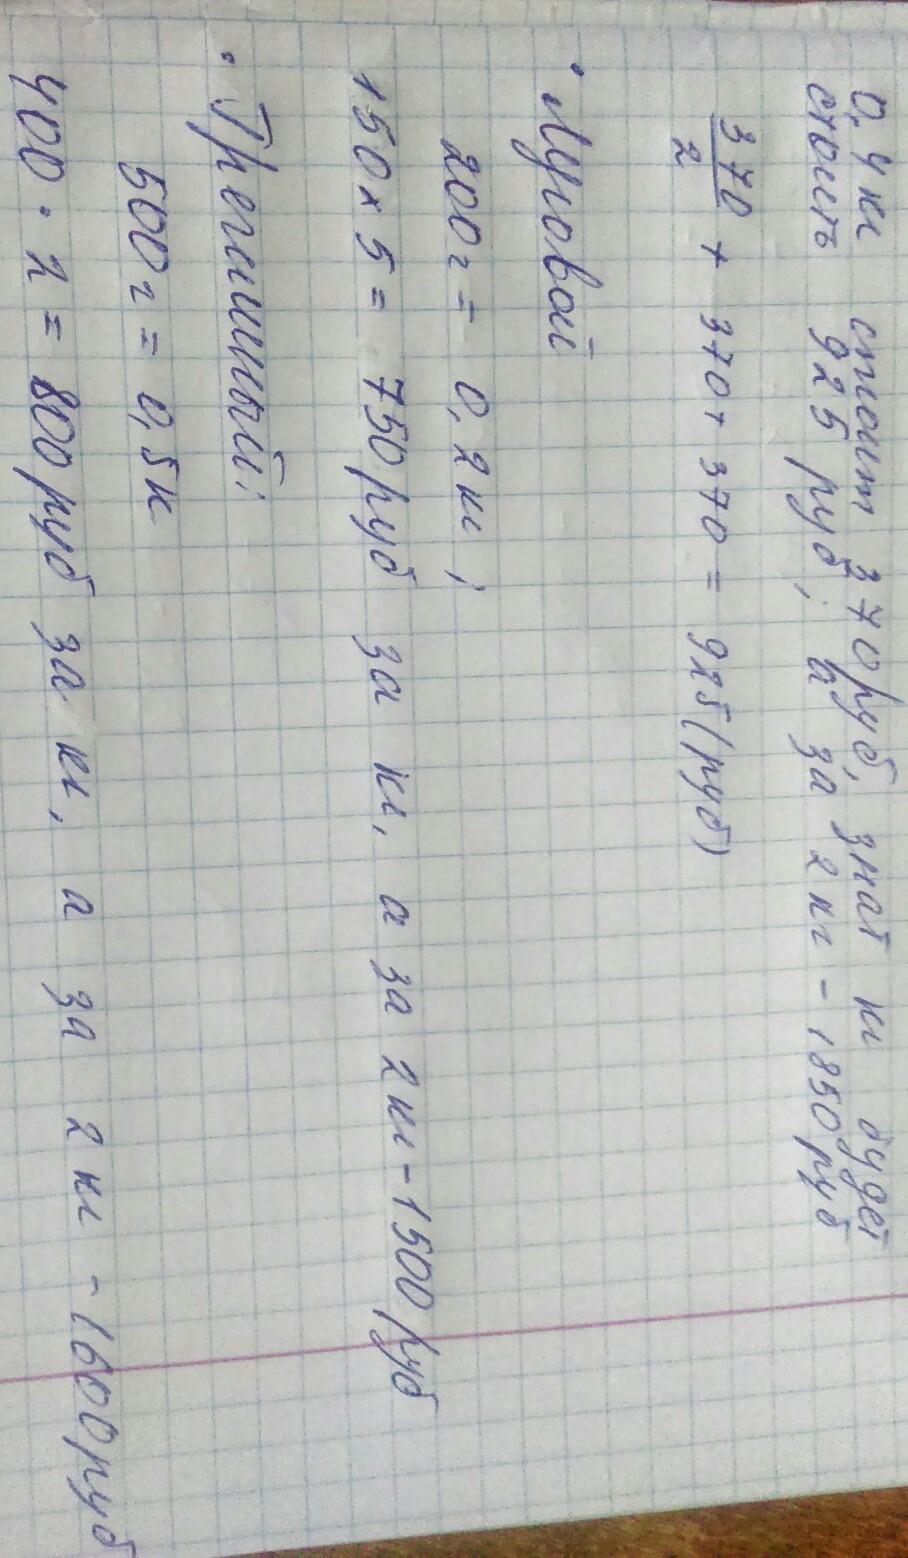 0,4 кг стоит 370 руб, знат кг будет
стоить 925 руб, а за 2 кг - 1850 руб
370/2 + 370 + 370 = 925 (руб)
• Луговой
200 г = 0,2 кг;
150 x 5 = 750 руб за кг, а за 2 кг - 1500 руб
• Гречишный:
500 г = 0,5 к
400 · 2 = 800 руб за кг, а за 2 кг - 1600 руб